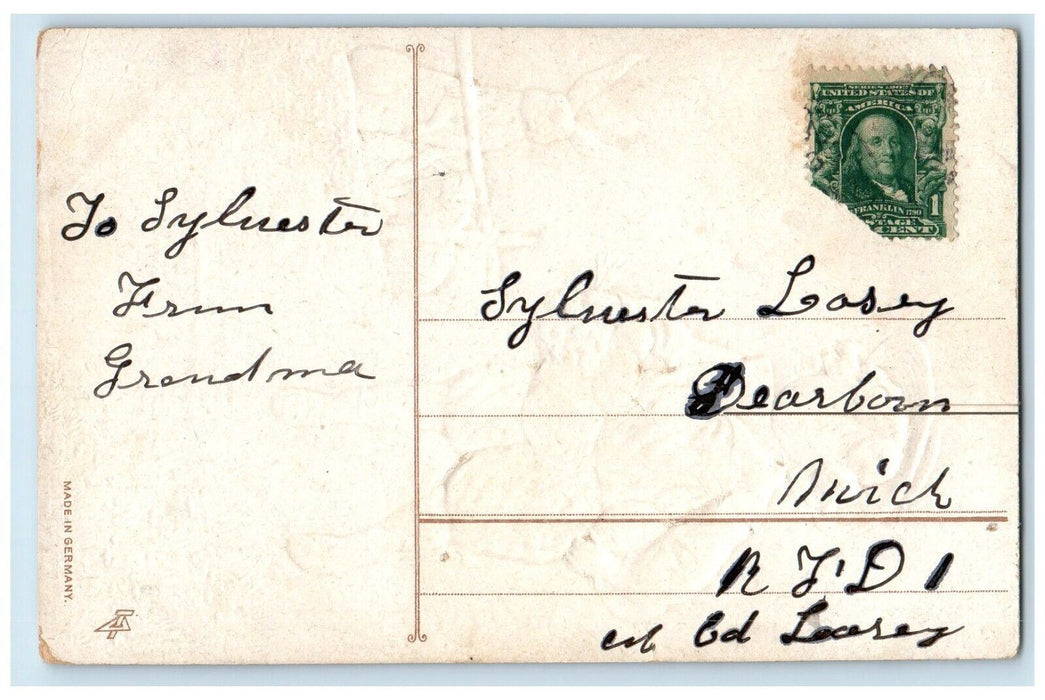 To Sylvester
From
Grandma
MADE IN GERMANY.
SERIES 1902
UNITED STATES OF
AMERICA
FRANKLIN 1790
STAGE
1
CENT
Sylvester Losey
Dearborn
Mich
R F D 1
Ed Losey